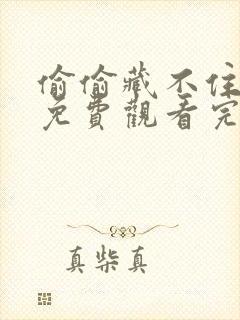 偷偷藏不住
免費觀看完
真柴真